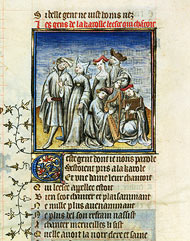 gent ne vist homs nez
gens de la karolle qui chante
gent dont ie vous parole
Sestoient pris a la karole
Et vne dame leur chantoit
leesce apellee estoit
Bien scot chanter et plaisamment
Ne nulle plus auenamment
Ne plus bel son refrain nassist
chanter merueilles li sist
auoit la clere et